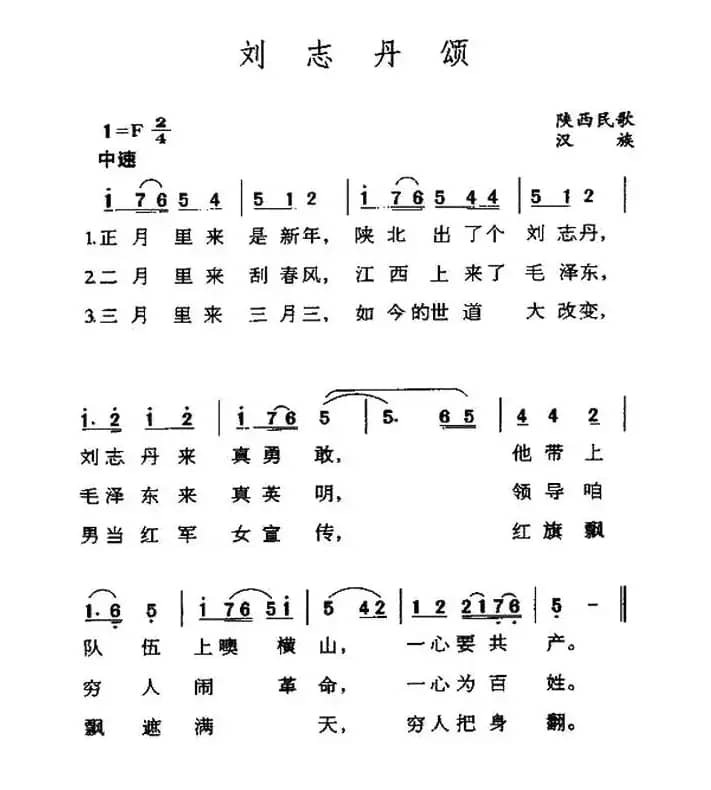 刘志丹颂
陕西民歌
1=F 2/4
汉 族
中速
i 7 6 5 4 | 5 1 2 | i 7 6 5 4 4 | 5 1 2 |
1.正 月 里 来 是 新 年, 陕 北 出 了 个 刘 志 丹,
2.二 月 里 来 刮 春 风, 江 西 上 来 了 毛 泽 东,
3.三 月 里 来 三 月 三, 如 今 的 世 道 大 改 变,
i. 2 i 2 | i 7 6 5 | 5. 6 5 | 4 4 2 |
刘 志 丹 来 真 勇 敢, 他 带 上
毛 泽 东 来 真 英 明, 领 导 咱
男 当 红 军 女 宣 传, 红 旗 飘
1. 6 5 | i 7 6 5 i | 5 4 2 | 1 2 2 1 7 6 | 5 - ||
队 伍 上 噢 横 山, 一 心 要 共 产。
穷 人 闹 革 命, 一 心 为 百 姓。
飘 遮 满 天, 穷 人 把 身 翻。